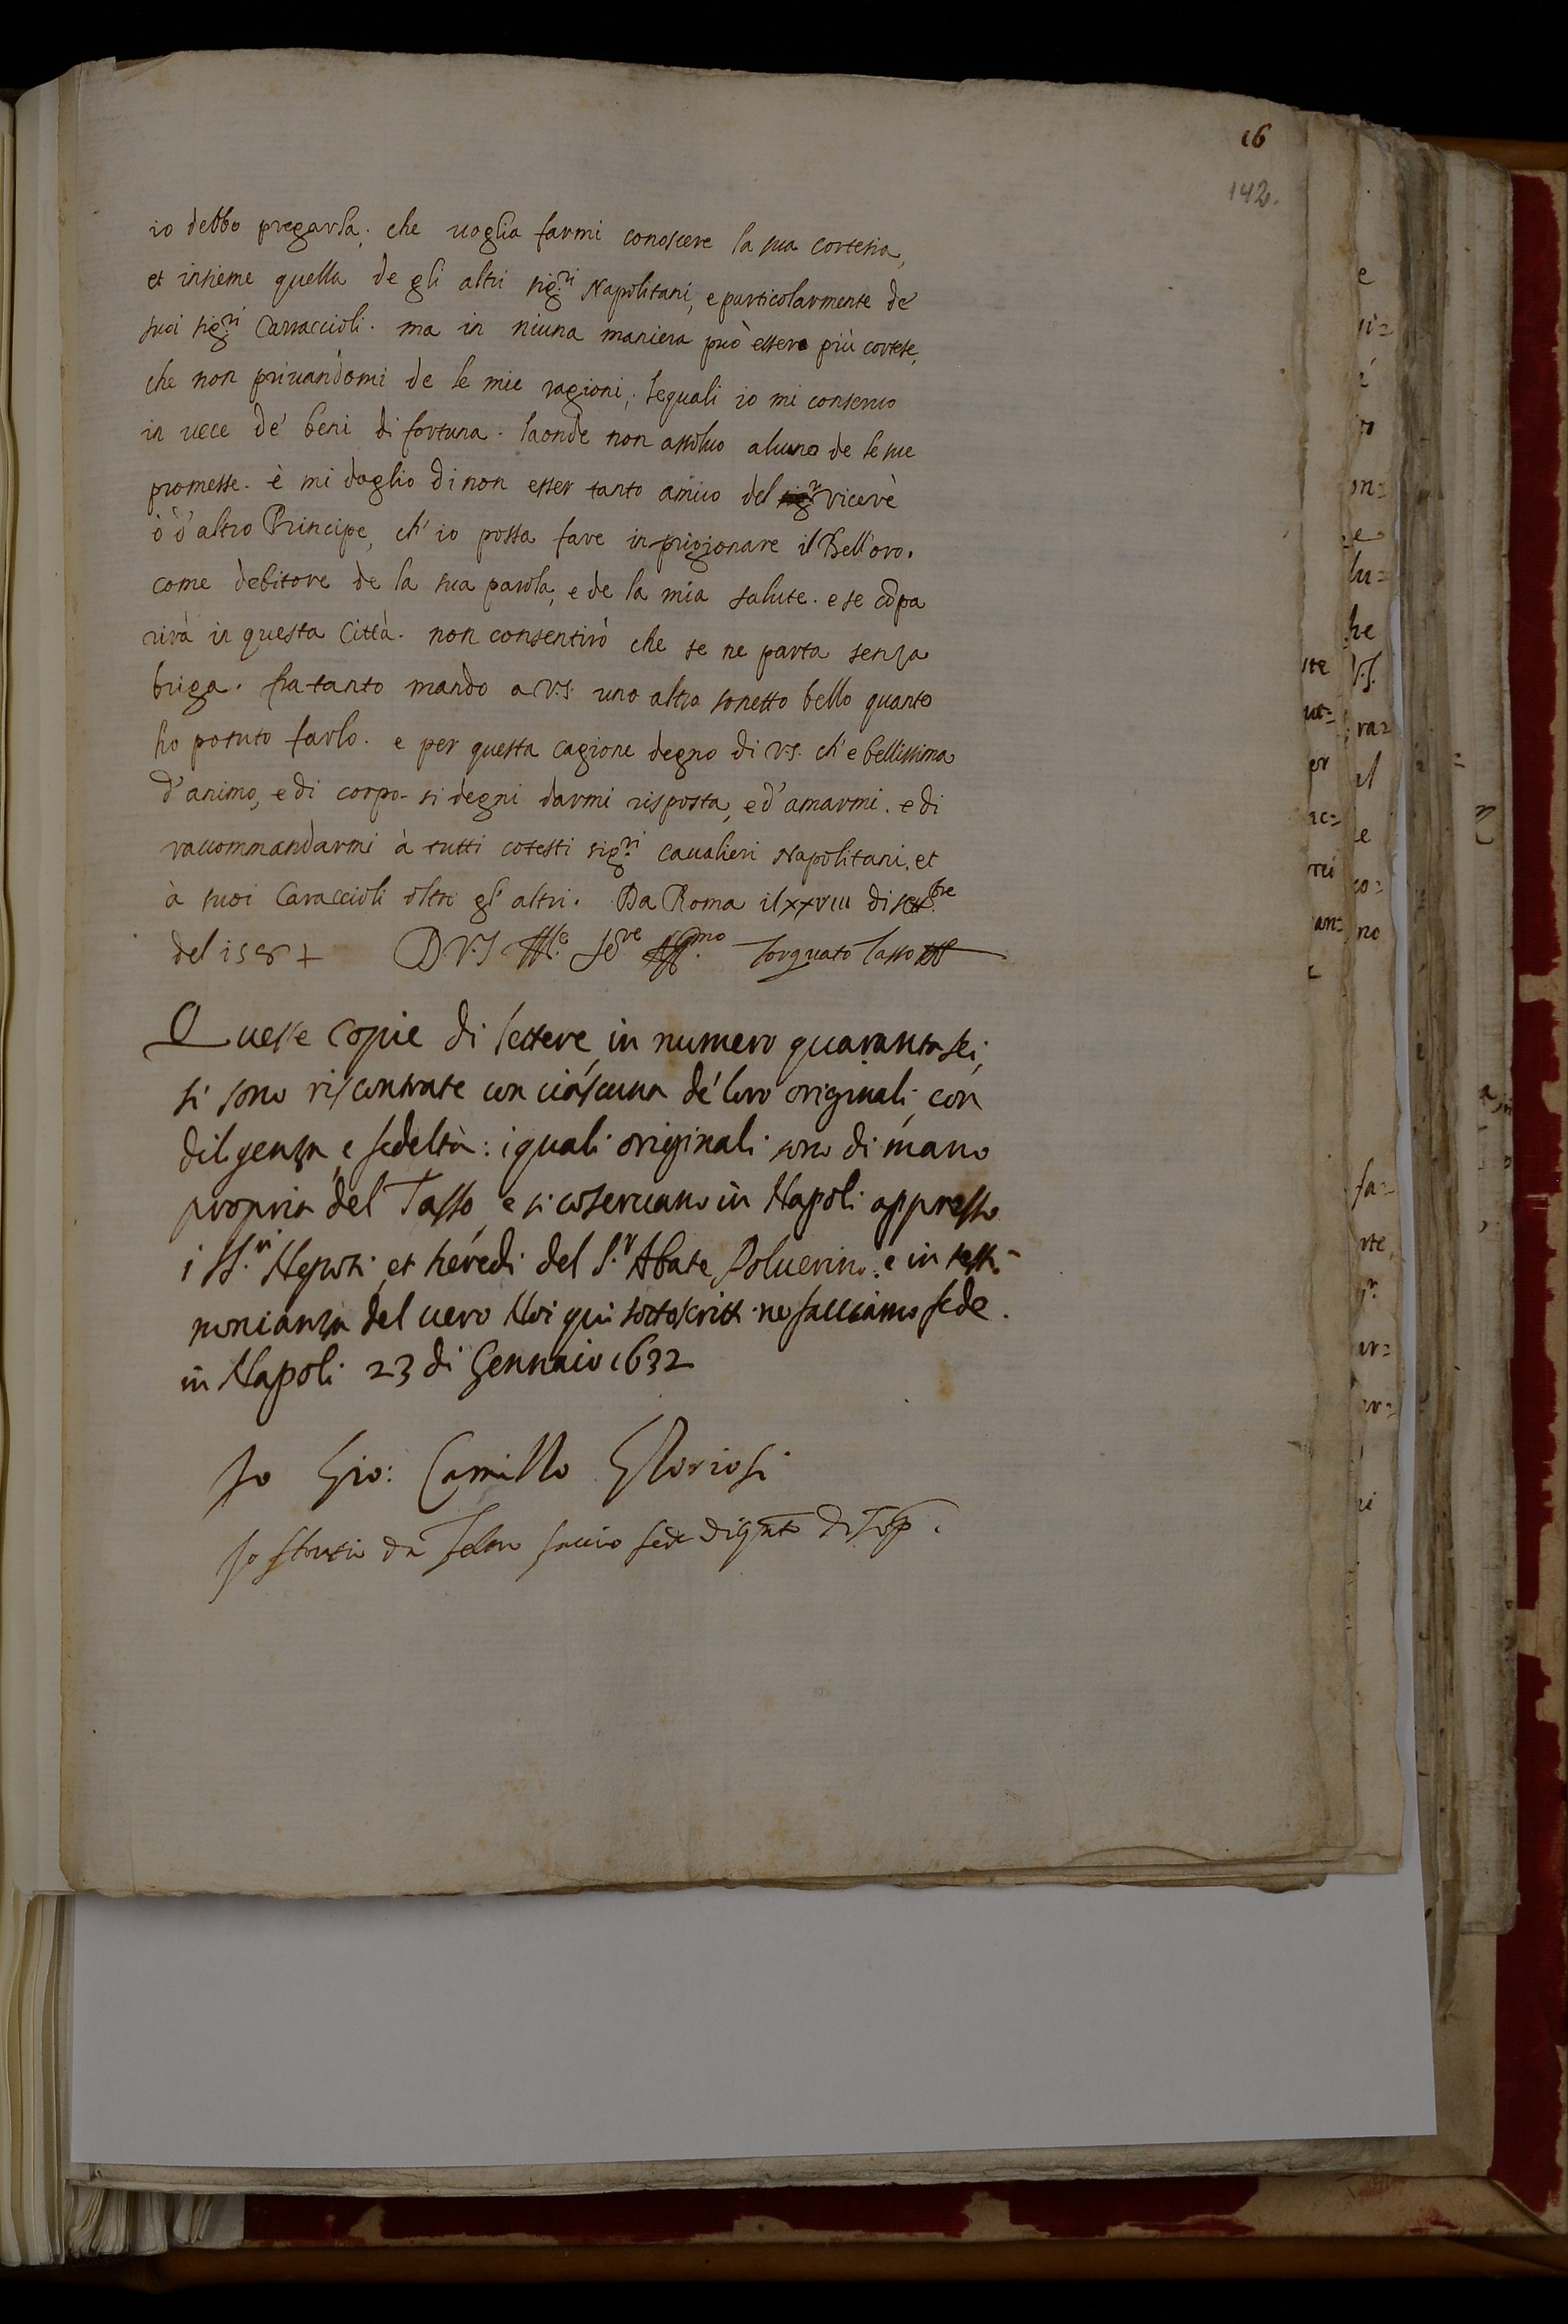 16
142.
io debbo pregarla; che uoglia farmi conoscere la sua cortesia,
et insieme quella de gli altri sig.ri Napolitani, e particolarmente de'
suoi sig.ri Carraccioli. ma in niuna maniera può essere più cortese,
che non priuandomi de le mie ragioni; lequali io mi conseruo
in uece de' beni di fortuna. laonde non assoluo alcuno de le sue
promesse. è mi doglio di non esser tanto amico del sig.r vicerè
ò d'altro Principe, ch'io possa fare inprigionare il Bell'oro.
come debitore de la sua parola, e de la mia salute. e se cōpa
rirà in questa Città. non consentirò che se ne parta senza
briga. fra tanto mando a V.S. uno altro sonetto bello quanto
ho potuto farlo. e per questa cagione degno di V.S. ch'e bellissima
d'animo, e di corpo. si degni darmi risposta, e d'amarmi. e di
raccommandarmi à tutti cotesti sig.ri caualieri Napolitani, et
à suoi Caraccioli oltre gl'altri. Da Roma il xxviii di sett.bre
del 158+ D.V.S. Ill.e Se.re Aff.mo Torquato Tasso
Queste Copie di lettere, in numero quarantasei,
si sono riscontrate con ciascuna de' loro originali, con
diligenza, e fedeltà: i quali originali sono di mano
propria del Tasso, e si coseruano in Napoli appresso
i SS.ri Nepoti, et heredi del S.r Abate Poluerino. e in testi-
monianza del uero Noi qui sottoscritti ne facciamo fede.
in Napoli 23 di Gennaio 1632
Io Gio: Camillo Gloriosi
Io da faccio fede di q.to di sop.
e
V.S.
il
e
no